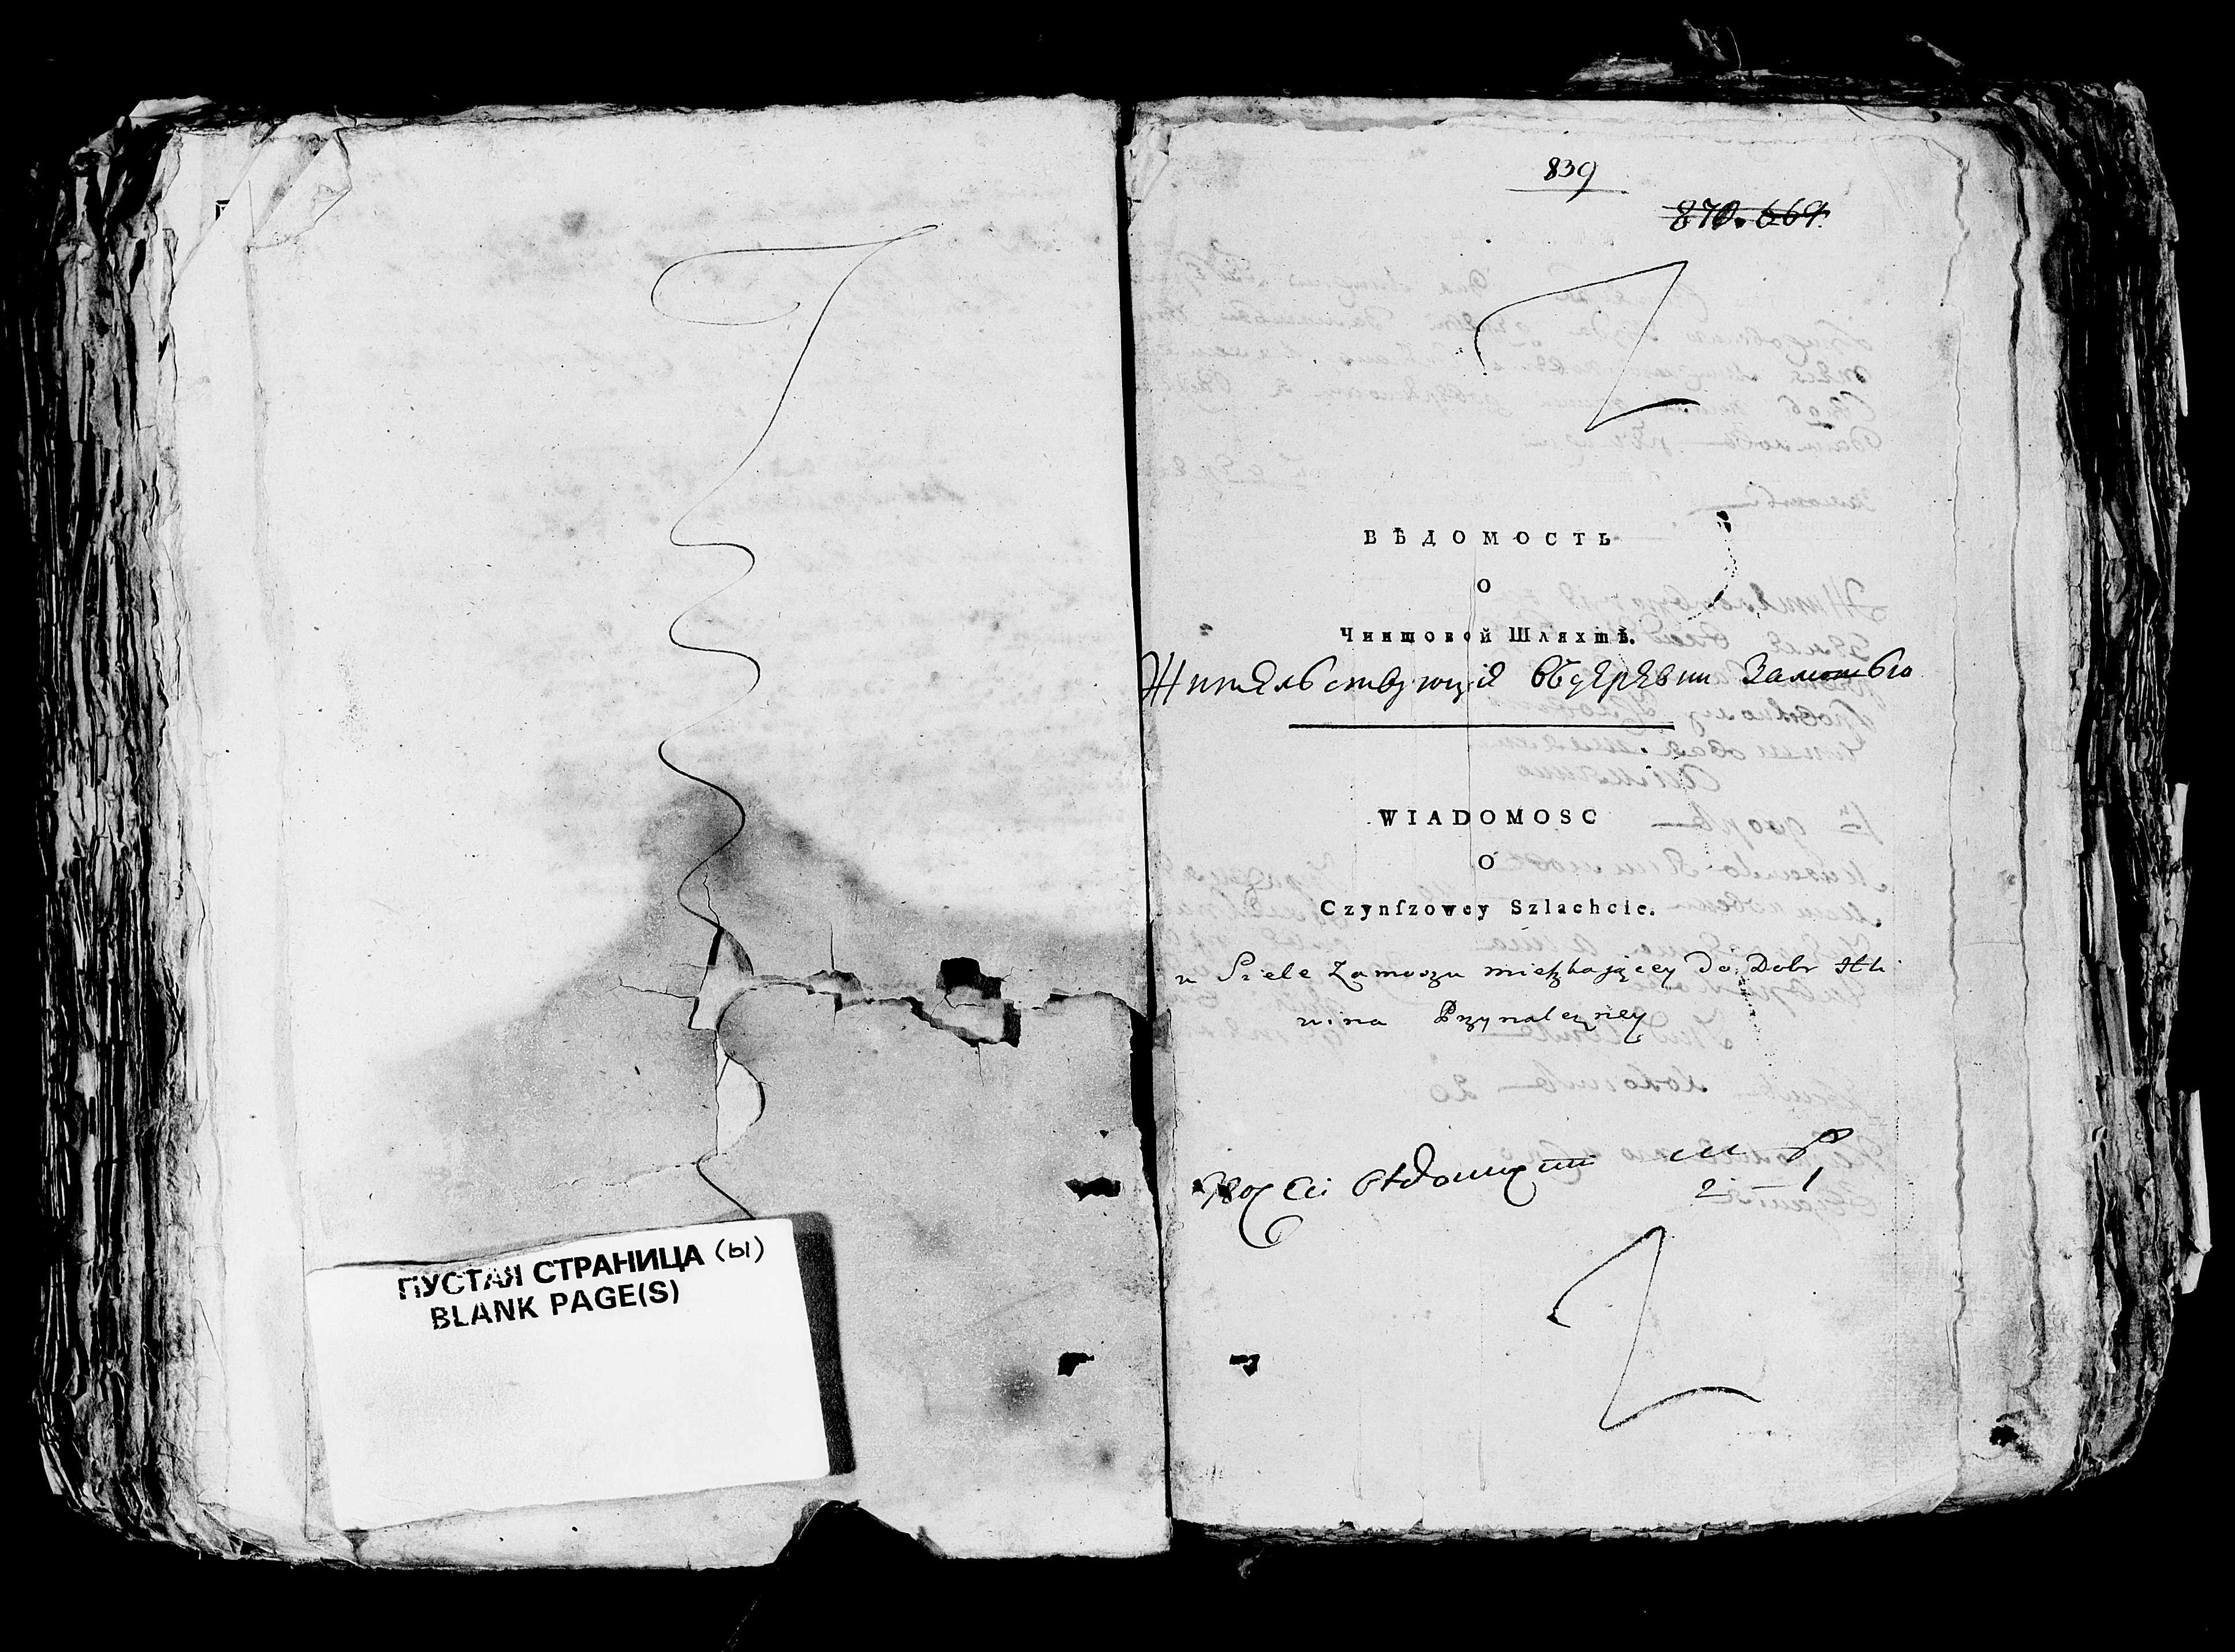 ПУСТАЯ СТРАНИЦА (ы)
BLANK PAGE(S)
839
870. 669.
ВѢДОМОСТЬ
О
Чиншовой Шляхтѣ.
Жительствующїй въ деревни Замошью
WIADOMOSC
O
Czynſzowey Szlachcie.
w Siele Zamoszu mieszkającey do Dobr Hli
wina Przynależney
вѣдомости
2 1